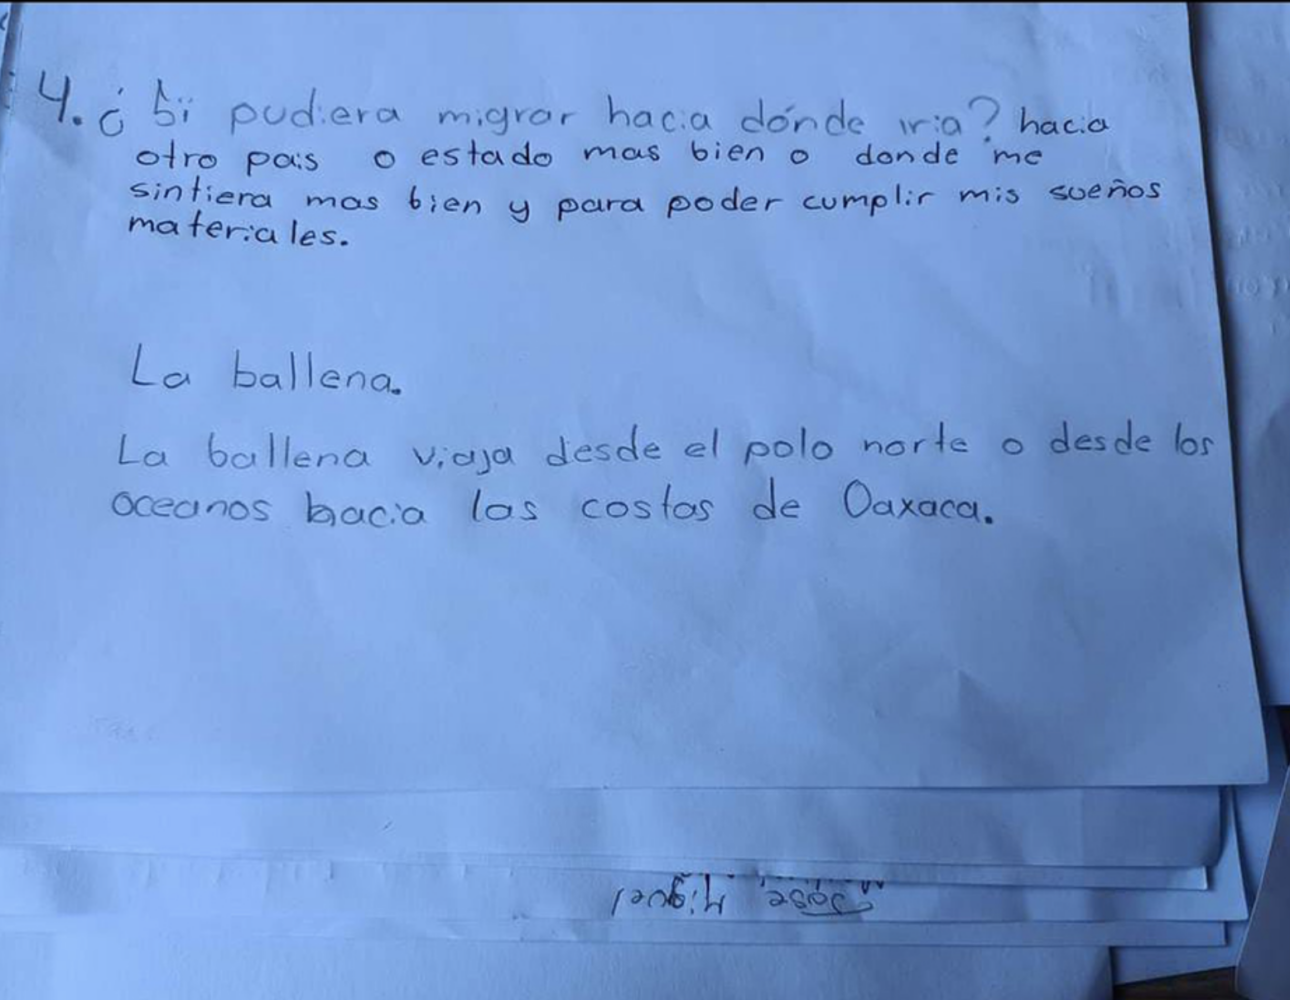 4. ¿ Si pudiera migrar hacia dónde iria? hacia
otro pais o estado mas bien o donde me
sintiera mas bien y para poder cumplir mis sueños
materiales.
La ballena.
La ballena viaja desde el polo norte o desde los
oceanos hacia las costas de Oaxaca.
José Miguel